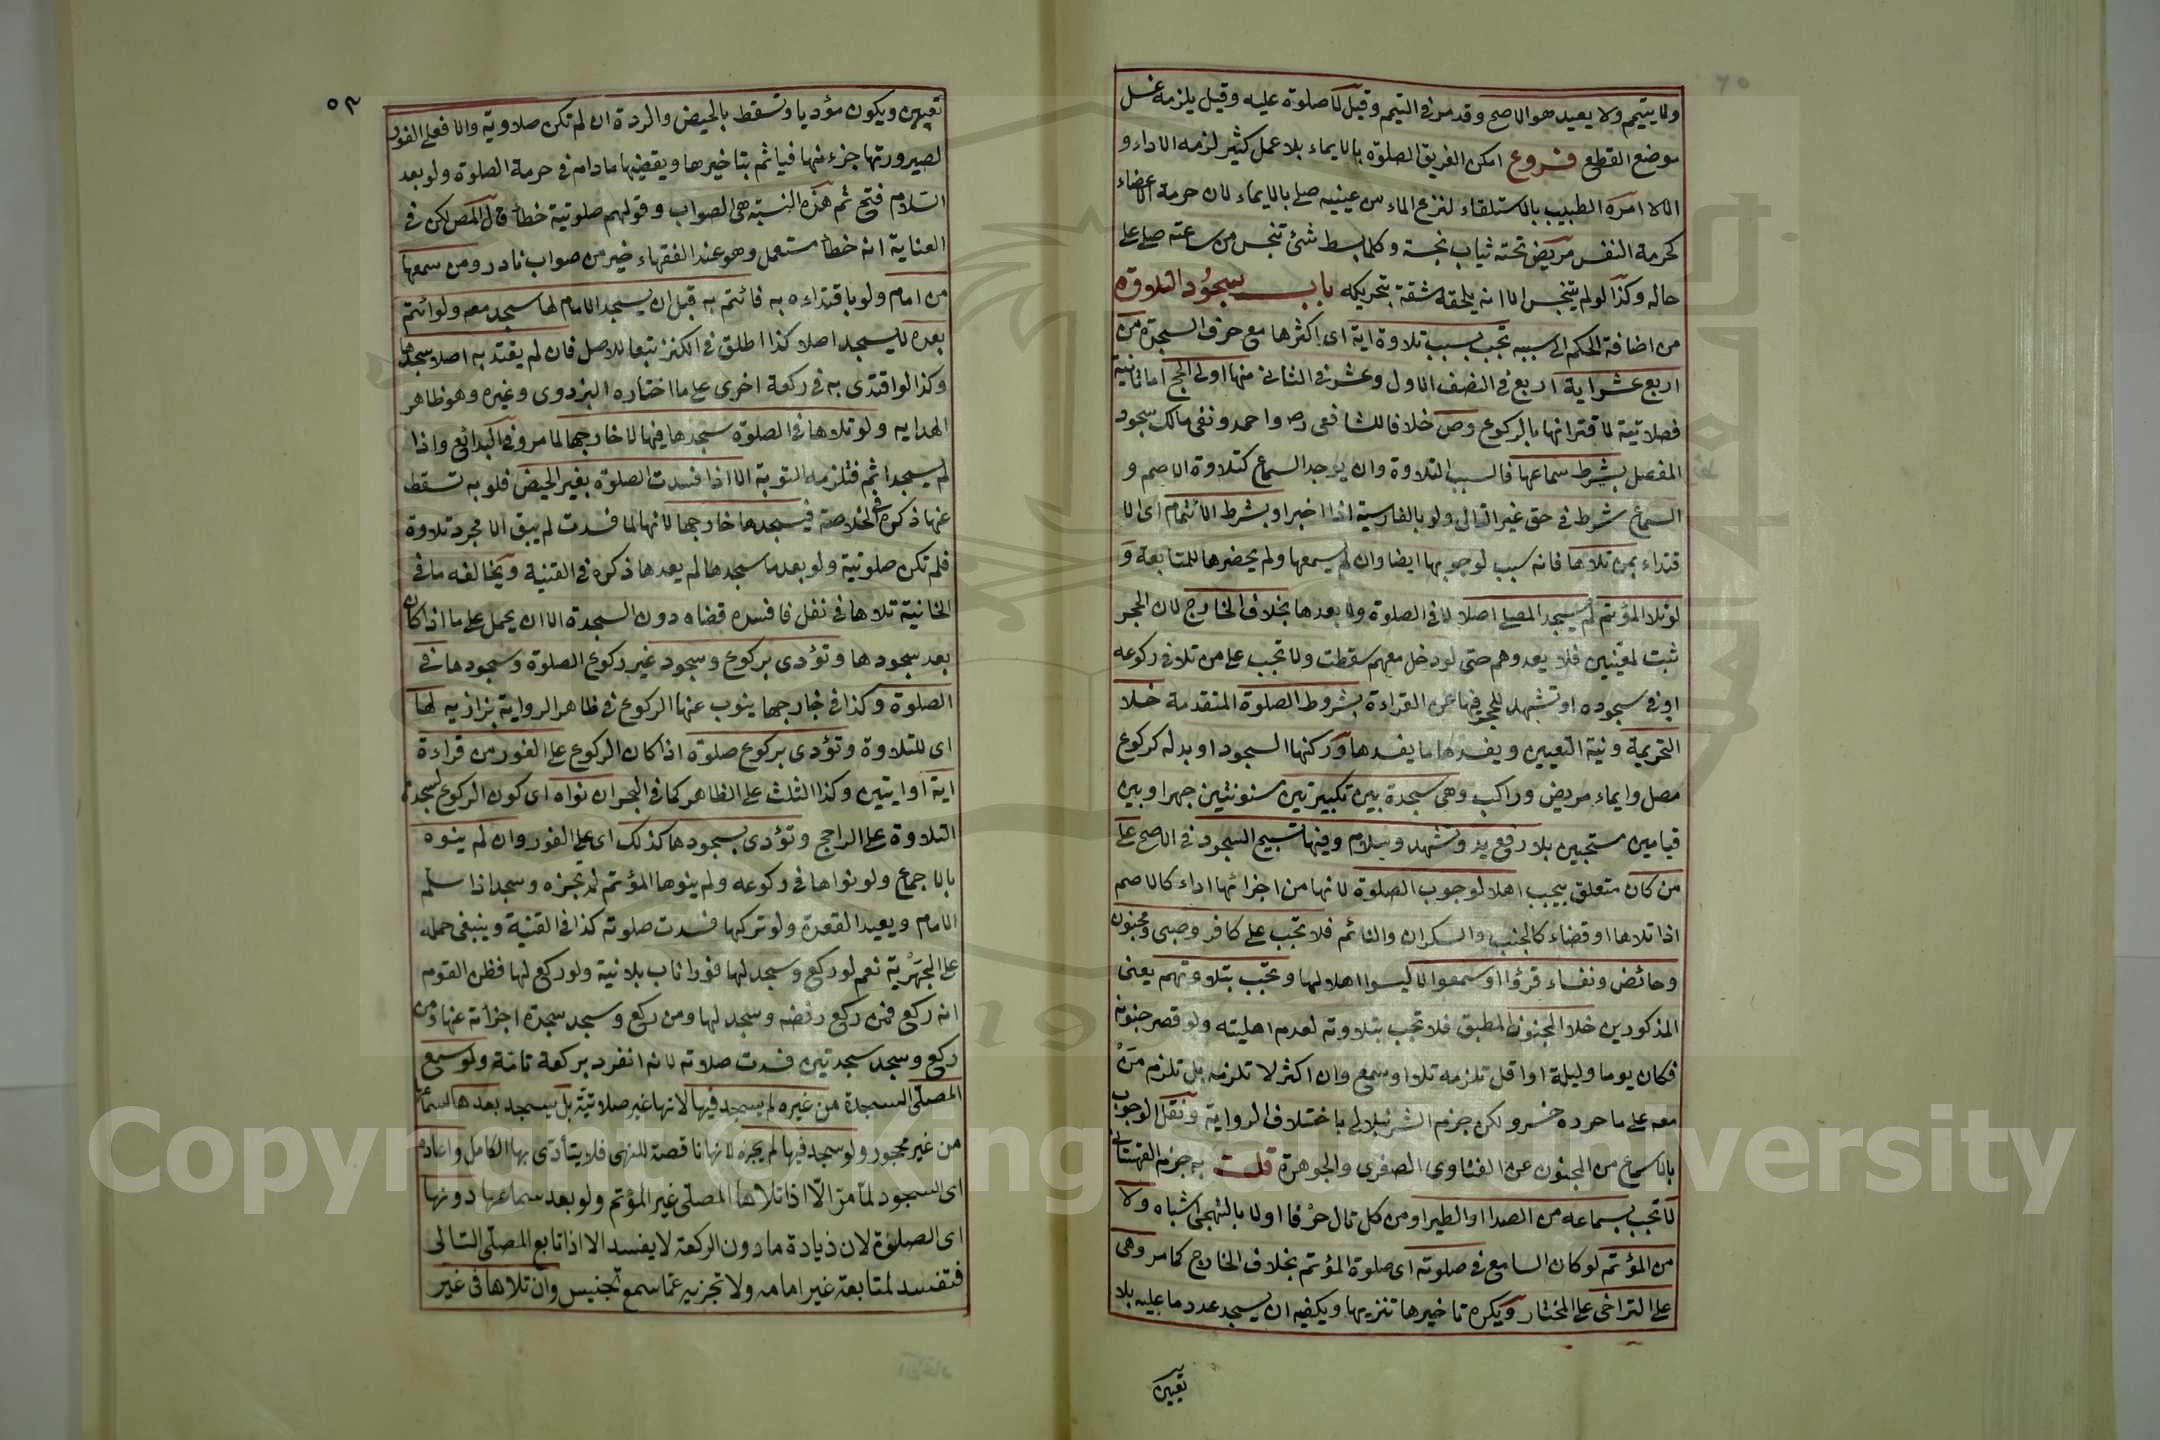 ولا يتيمم ولا يعيد هو الاصح وقد مر فى التيمم وقيل لا صلوة عليه وقيل يلزمه غسل
موضع القطع فروع امكن الغريق الصلوة بالايماء بلا عمل كثير لزمه الاداء و
الا لا امره الطبيب بالاستلقاء لنزع الماء من عينيه صلى بالايماء لان حرمة الاعضاء
كحرمة النفس مريض تحته ثياب نجسة وكلما بسط شئ تنجس من ساعته صلى على
حاله وكذا لو لم يتنجس الا انه يلحقه مشقة بتحريكه باب سجود التلاوة
من اضافة الحكم الى سببه تجب بسبب تلاوة اية اى اكثرها مع حرف السجدة من
اربع عشر اية اربع فى النصف الاول وعشر فى الثانى منها اولى الحج اما ثانية
فصلاتية لاقترانها بالركوع وص خلافا للشافعى رح واحمد ونفى مالك سجود
المفصل بشرط سماعها فالسبب التلاوة وان لم يوجد السماع كتلاوة الاصم و
السماع شرط فى حق غير التالى ولو بالفارسية اذا اخبر او بشرط الائتمام اى الا
قتداء بمن تلاها فانه سبب لوجوبها ايضا وان لم يسمعها ولم يحضرها للمتابعة و
لو تلا المؤتم لم يسجد المصلى اصلا لا فى الصلوة ولا بعدها بخلاف الخارج لان الحجر
ثبت لمعينين فلا يعدوهم حتى لو دخل معهم سقطت ولا تجب على من تلا فى ركوعه
او فى سجوده او تشهد للحجر فيها عن القراءة بشروط الصلوة المتقدمة خلا
التحريمة ونية التعيين ويفسدها ما يفسدها وركنها السجود او بدله كركوع
مصل وايماء مريض وراكب وهى سجدة بين تكبيرتين مسنونتين جهرا وبين
قيامين مستحبين بلا رفع يد وتشهد وسلام وفيها تسبيح السجود فى الاصح على
من كان متعلق بيجب اهلا لوجوب الصلوة لانها من اجزائها اداء كالاصم
اذا تلاها او قضاء كالجنب والسكران والنائم فلا تجب على كافر وصبى ومجنون
وحائض ونفساء قرؤا او سمعوا لا ليسوا اهلا لها وتجب بتلاوتهم يعنى
المذكورين خلا المجنون المطبق فلا تجب بتلاوته لعدم اهليته ولو قصر جنونه
فكان يوما وليلة او اقل تلزمه تلا او سمع وان اكثر لا تلزمه بل تلزم من
معه على ما حرده خسرو لكن جزم الشرنبلالى باختلاف الرواية ونقل الوجوب
بالسماع من المجنون عن الفتاوى الصغرى والجوهرة قلت به جزم القهستانى
لا تجب بسماعه من الصدا والطير او من كل تال حرفا او لا بالتهجى اشباه ولا
من المؤتم لو كان السامع فى صلوته اى صلوة المؤتم بخلاف الخارج كما مر وهى
على التراخى على المختار ويكره تاخيرها تنزيها ويكفيه ان يسجد عدد ما عليه بلا
تعيين
٥٣
تعيين ويكون مؤديا وتسقط بالحيض والردة ان لم تكن صلاوية والا فعلى الفور
لصيرورتها جزء منها فياثم بتاخيرها ويقضيها مادام فى حرمة الصلوة ولو بعد
السلام فتح ثم هذه النسبة هى الصواب وقولهم صلوتية خطأ قال المص لكن فى
العناية انه خطأ مستعمل وهو عند الفقهاء خير من صواب نادر ومن سمعها
من امام ولو باقتداءه به فائتم به قبل ان يسجد الامام لها سجد معه ولو ائتم
بعده لا يسجد اصلا كذا اطلق فى الكنز تبعا للاصل فان لم يقتد به اصلا سجدها
وكذا لو اقتدى به فى ركعة اخرى على ما اختاره البزدوى وغيره وهو ظاهر
الهدايه ولو تلاها فى الصلوة سجدها فيها لا خارجها لما مر وفى البدائع واذا
لم يسجد اثم فتلزمه التوبة الا اذا فسدت الصلوة بغير الحيض فلو به تسقط
عنها ذكره فى الخلاصة فيسجدها خارجها لانها لما فسدت لم يبق الا مجرد تلاوة
فلم تكن صلوتية ولو بعد ما سجدها لم يعدها ذكره فى القنية ويخالفه ما فى
الخانية تلاها فى نفل فافسده قضاه دون السجدة الا ان يحمل على ما اذا كان
بعد سجودها وتؤدى بركوع وسجود غير ركوع الصلوة وسجودها فى
الصلوة وكذا فى خارجها ينوب عنها الركوع فى ظاهر الرواية بزازيه لها
اى للتلاوة وتؤدى بركوع صلوة اذا كان الركوع على الفور من قراءة
اية او ايتين وكذا الثلث على الظاهر كما فى البحر ان نواه اى كون الركوع لسجدة
التلاوة على الراجح وتؤدى بسجودها كذلك اى على الفور وان لم ينوه
بالاجماع ولو نواها فى ركوعه ولم ينوها المؤتم لم تجزه وسجد اذا سلم
الامام ويعيد القعدة ولو تركها فسدت صلوته كذا فى القنية وينبغى حمله
على الجهرية نعم لو ركع وسجد لها فورا ناب بلا نية ولو ركع لها فظن القوم
انه ركع فمن ركع رفضه وسجد لها ومن ركع وسجد سجدة اجزأته عنها ومن
ركع وسجد سجدتين فسدت صلاته لانه انفرد بركعة تامة ولو سمع
المصلى السجدة من غيره لم يسجد فيها لانها غير صلاتية بل يسجد بعدها لسماعها
من غير محجور ولو سجد فيها لم يجزه لانها ناقصة للنهى فلا يتأدى بها الكامل واعاده
اى السجود لما مر الا اذا تلاها المصلى غير المؤتم ولو بعد سماعها دونها
اى الصلوة لان زيادة ما دون الركعة لا يفسد الا اذا تابع المصلى التالى
فتفسد لمتابعة غير امامه ولا تجزيه عما سمع تجنيس وان تلاها فى غير
Copyright © King Saud University